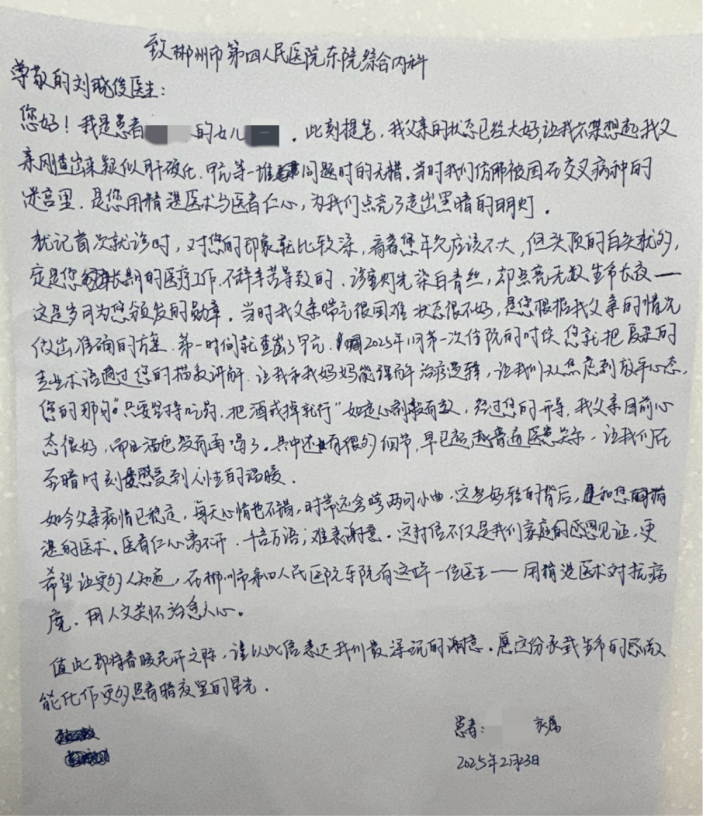 致郴州市第四人民医院东院综合内科
尊敬的刘晓俊医生:
您好!我是患者 的女儿 。此刻提笔,我父亲的状态已经大好,让我不禁想起我父
亲刚查出来疑似肝硬化、甲亢等一堆问题时的无措。当时我们仿佛被困在交叉病种的
迷宫里,是您用精湛医术与医者仁心,为我们点亮了走出黑暗的明灯。
犹记首次就诊时,对您的印象就比较深,看着您年纪应该不大,但头顶的白头就多,
定是您长期的医疗工作,不辞辛苦导致的。诊室灯光染白青丝,却点亮无数生命长夜——
这是岁月为您颁发的勋章。当时我父亲喘气很困难状态很不好,是您根据我父亲的情况
做出准确的方案,第一时间就查出了甲亢,2025年1月第一次住院的时候您就把复杂的
专业术语通过您的描叙讲解,让我和我妈妈能理解治疗逻辑,让我们从焦虑到放平心态,
您的那句"只要坚持吃药,把酒戒掉就行"如定心剂般有效,经过您的开导,我父亲目前心
态很好,而且酒也没有再喝了。其中还有很多细节,早已超越普通医患关系,让我们在
至暗时刻感受到人性的温暖。
如今父亲病情已稳定,每天心情也不错,时常还会哼两句小曲,这些好转的背后,和您精
湛的医术、医者仁心离不开,千言万语,难表谢意。这封信不仅是我们家庭的感恩见证,更
希望让更多人知道,在郴州市第四人民医院东院有这样一位医生——用精湛医术对抗病
魔,用人文关怀治愈人心。
值此即将春暖花开之际,谨以此信表达我们最深沉的谢意。愿这份承载生命的感激
能化作更多患者暗夜里的星光。
患者: 家属
2025年2月23日